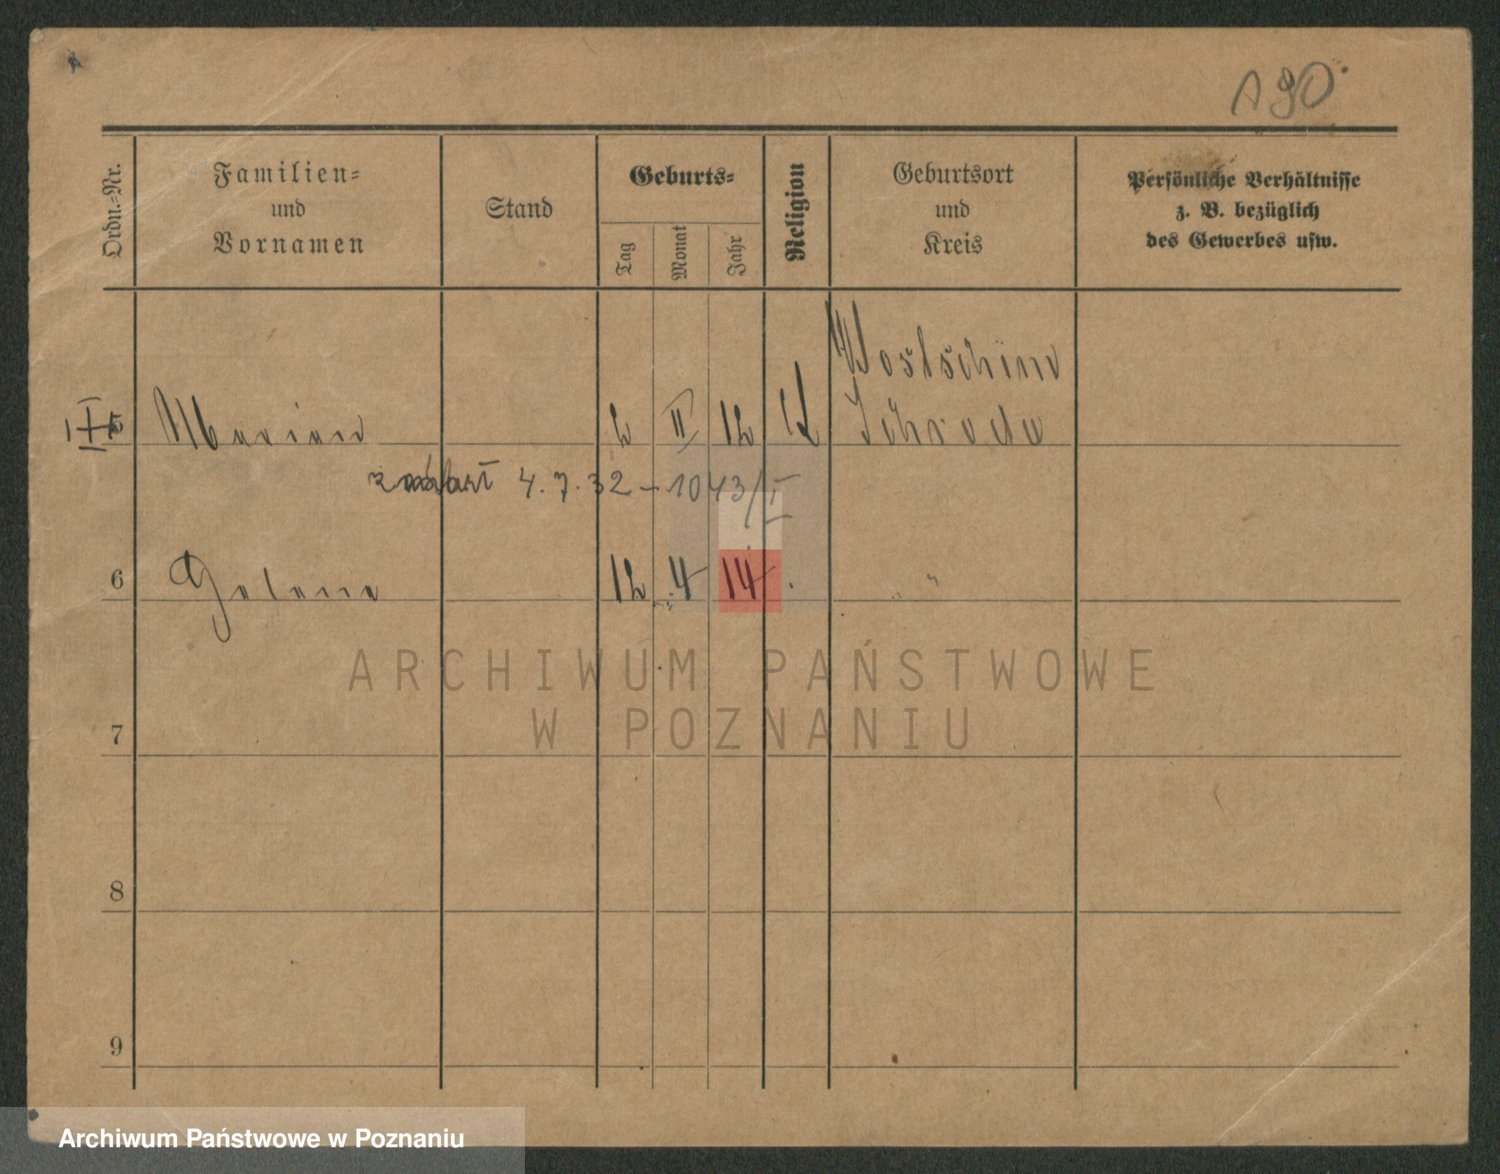 190
Ordn.-Nr.
Familien-
und
Vornamen
Stand
Geburts-
Tag
Monat
Jahr
Religion
Geburtsort
und
Kreis
Persönliche Verhältnisse
z. B. bezüglich
des Gewerbes usw.
5 Marian 2 II 12
Schroda
zmarł 4.7.32 – 1043/I
6 12 4 14 "
7
8
9
ARCHIWUM PAŃSTWOWE
W POZNANIU
Archiwum Państwowe w Poznaniu